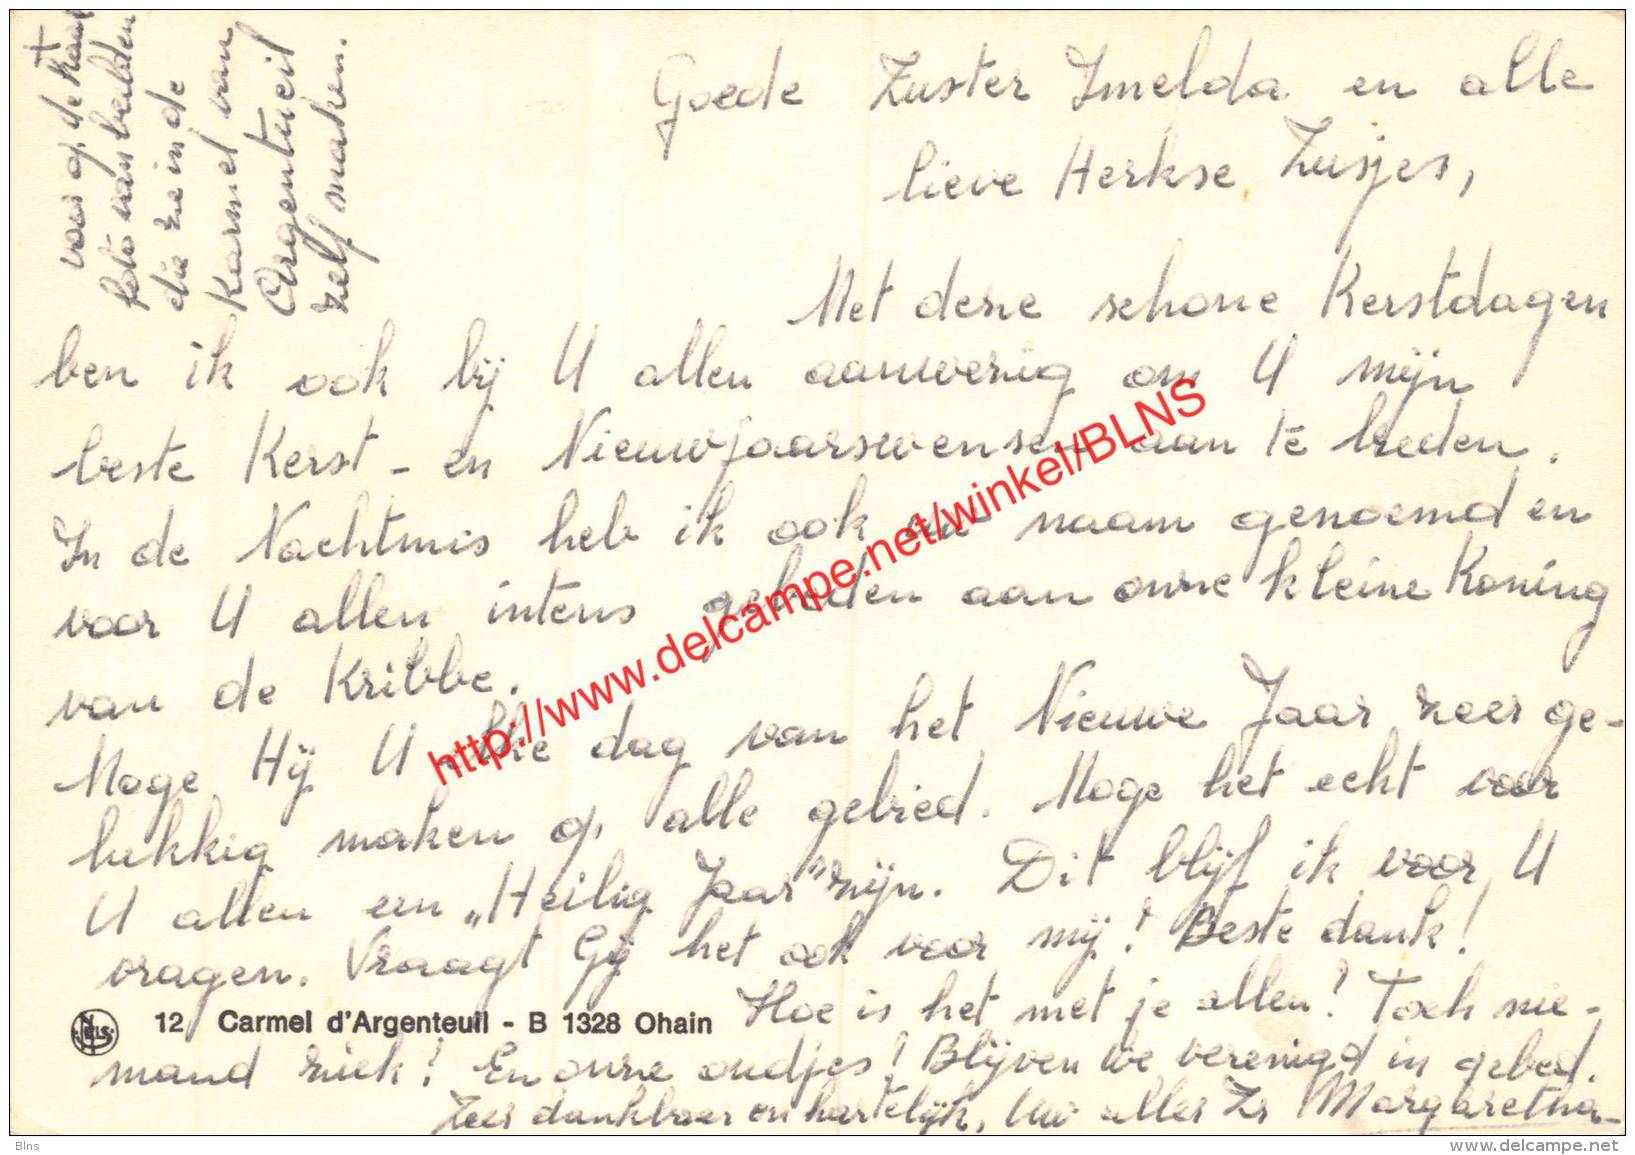 voor op de kaart
foto van beelden
die ze in de
Karmel van
Argenteuil
zelf maken.
Goede Zuster Imelda en alle
lieve Herkse Zusjes,
Met deze schone Kerstdagen
ben ik ook bij U allen aanwezig om U mijn
beste Kerst- en Nieuwjaarswensen aan te bieden.
In de Nachtmis heb ik ook uw naam genoemd en
voor U allen intens gebeden aan onze kleine Koning
van de Kribbe.
Moge Hij U elke dag van het Nieuwe Jaar zeer ge-
lukkig maken op alle gebied. Moge het echt voor
U allen een „Heilig Jaar" zijn. Dit blijf ik voor U
vragen. Vraagt Gij het ook voor mij! Beste dank!
Hoe is het met je allen! Toch nie-
NELS 12 Carmel d'Argenteuil - B 1328 Ohain
mand ziek! En onze oudjes! Blijven we verenigd in gebed.
Zeer dankbaar en hartelijk, Uw aller Zr Margaretha-
http://www.delcampe.net/winkel/BLNS
Blns
www.delcampe.net